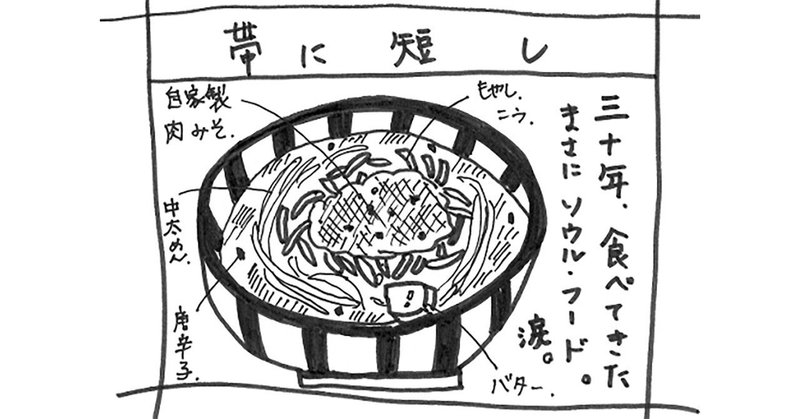 帯に短し
三十年、食べてきた
まさにソウル・フード。
涙。
もやし.
ニラ.
自家製
肉みそ.
中太めん.
唐辛子.
バター.